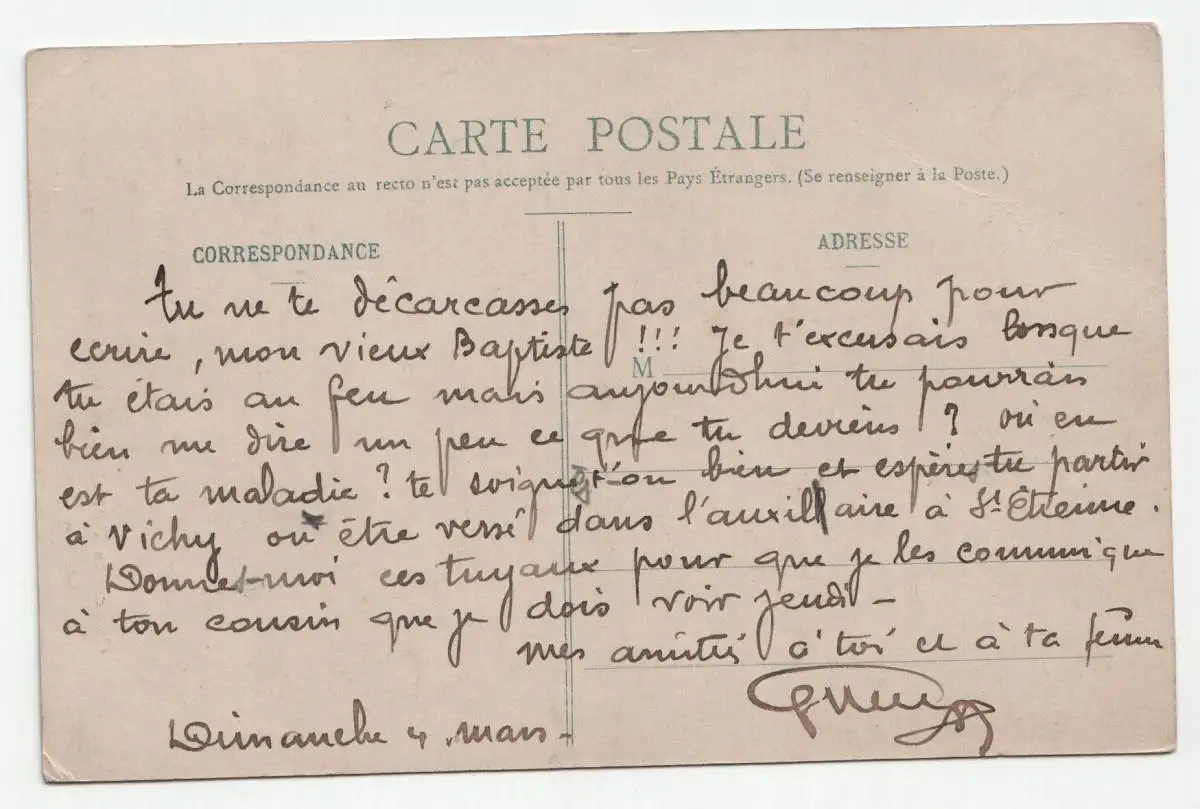 CARTE POSTALE
La Correspondance au recto n'est pas acceptée par tous les Pays Étrangers. (Se renseigner à la Poste.)
CORRESPONDANCE
ADRESSE
M
Tu ne te décarcasses pas beaucoup pour
ecrire, mon vieux Baptiste !!! Je t'excusais lorsque
tu étais au feu mais aujourd'hui tu pourrais
bien me dire un peu ce que tu deviens ? où en
est ta maladie ? te soigne t'on bien et espères tu partir
à Vichy ou être versé dans l'auxillaire à St Etienne.
Donnes-moi ces tuyaux pour que je les communique
à ton cousin que je dois voir jeudi -
mes amitiés à toi et à ta femme
Dimanche 4 mars -